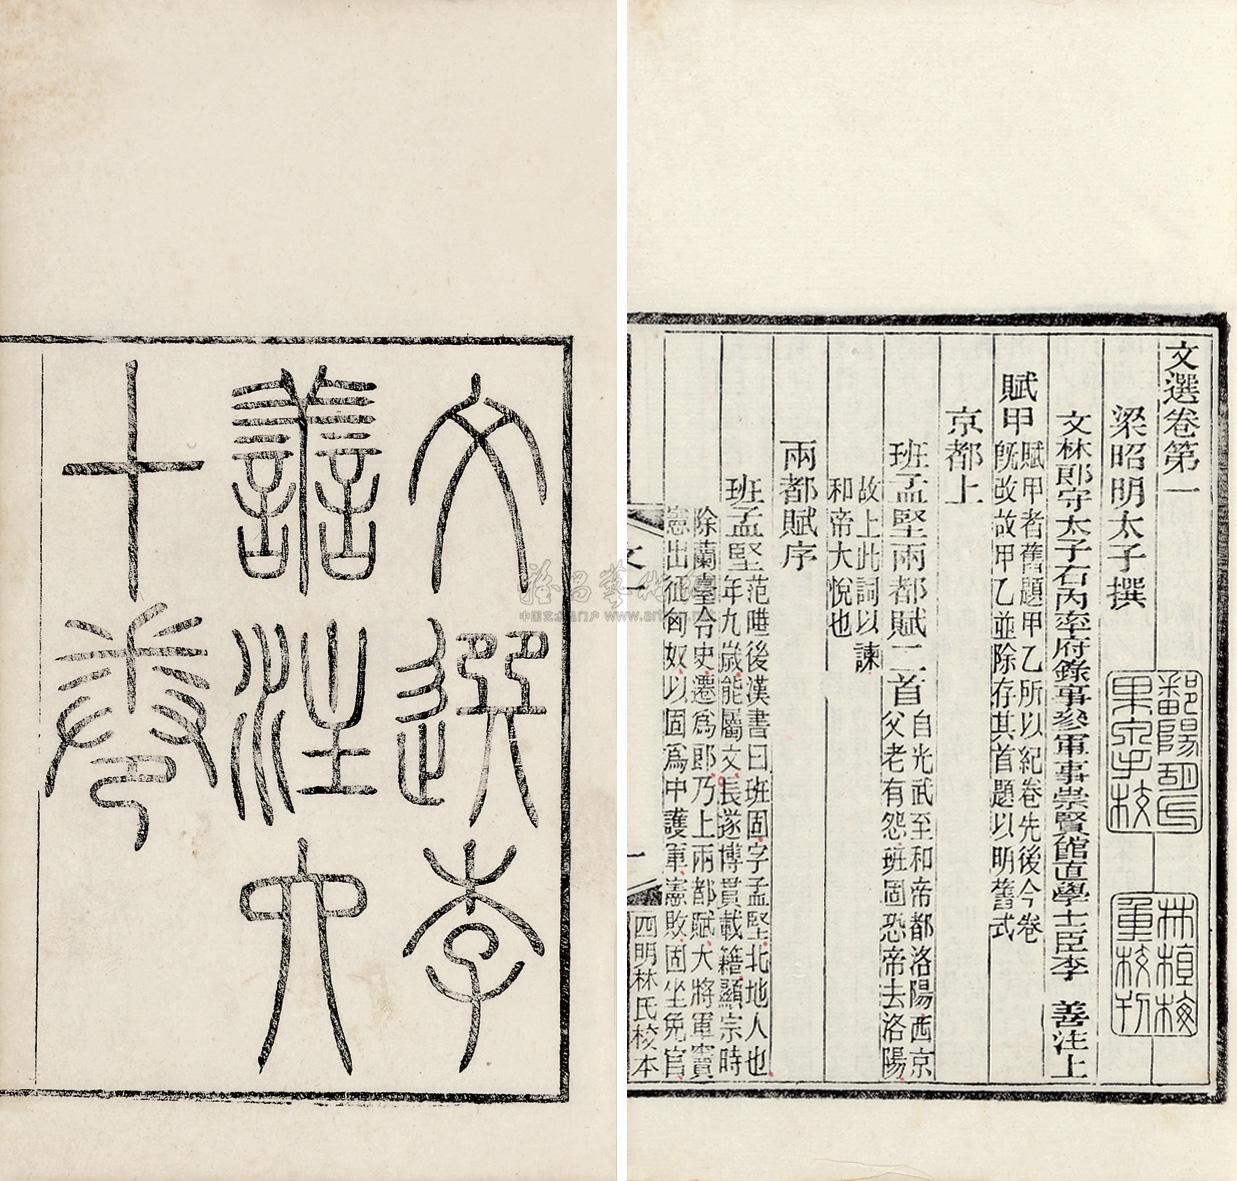 文選李
善注六
十卷
文選卷第一
梁昭明太子撰
文林郎守太子右內率府錄事參軍事崇賢館直學士臣李 善注上
賦甲
賦甲者舊題甲乙所以紀卷先後今卷
旣改故甲乙並除存其首題以明舊式
京都上
班孟堅兩都賦二首
自光武至和帝都洛陽西京
父老有怨班固恐帝去洛陽
故上此詞以諫
和帝大悅也
兩都賦序
班孟堅
范曄後漢書曰班固字孟堅北地人也
年九歲能屬文長遂博貫載籍顯宗時
除蘭臺令史遷爲郎乃上兩都賦大將軍竇
憲出征匈奴以固爲中護軍憲敗固坐免官
文
一
四明林氏校本
鄱陽胡氏
果泉校
林植梅
重校刊
中国艺术品门户